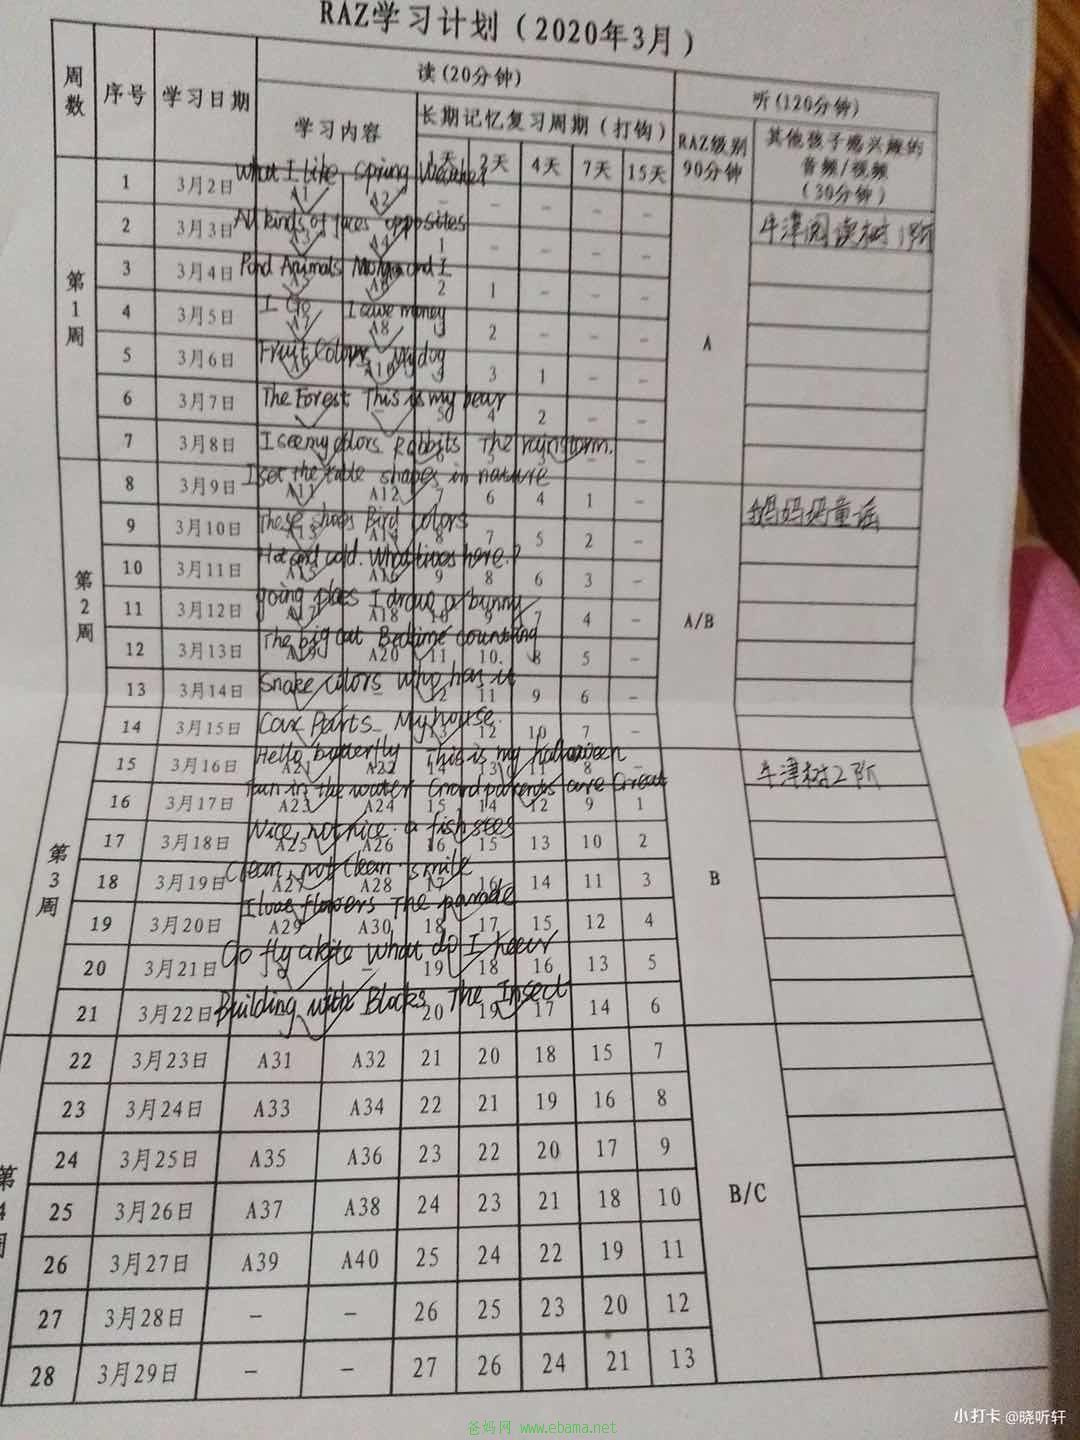 RAZ学习计划（2020年3月）
周数 序号 学习日期 读(20分钟) 听(120分钟)
学习内容 长期记忆复习周期（打钩） RAZ级别 90分钟 其他孩子感兴趣的音频/视频（30分钟）
1天 2天 4天 7天 15天
第1周 A 牛津阅读树1阶
1 3月2日 What I like spring Weather A1 A2 - - - - -
2 3月3日 All kinds of faces opposites A3 A4 1 - - - -
3 3月4日 Pond Animals Mo and I A5 A6 2 1 - - -
4 3月5日 I Go Leave money A7 A8 3 2 - - -
5 3月6日 Fruit Colours My dog A9 A10 3 1 - -
6 3月7日 The Forest This is my bear - 5 4 2 - -
7 3月8日 I see my colors Rabbits The rainstorm. 6 - -
第2周 A/B 鹅妈妈童谣
8 3月9日 I set the table shapes in nature A11 A12 7 6 4 1 -
9 3月10日 These shoes Bird colors A13 A14 8 7 5 2 -
10 3月11日 Hot and cold. What lives here? A15 A16 9 8 6 3 -
11 3月12日 going places I draw a bunny A17 A18 10 9 7 4 -
12 3月13日 The big cat Bedtime counting A19 A20 11 10 8 5 -
13 3月14日 Snake colors who has it - 12 11 9 6 -
14 3月15日 Car Parts My house. - 13 12 10 7 -
第3周 B 牛津树2阶
15 3月16日 Hello butterfly This is my halloween A21 A22 14 13 11 8 -
16 3月17日 Fun in the water Grandparents are Great A23 A24 15 14 12 9 1
17 3月18日 Nice, not nice. a fish sees A25 A26 16 15 13 10 2
18 3月19日 Clean, not Clean. smile A27 A28 17 16 14 11 3
19 3月20日 I love flowers The parade A29 A30 18 17 15 12 4
20 3月21日 Go fly a kite What do I hear - 19 18 16 13 5
21 3月22日 Building with Blocks The Insect - 20 19 17 14 6
第4周 B/C
22 3月23日 A31 A32 21 20 18 15 7
23 3月24日 A33 A34 22 21 19 16 8
24 3月25日 A35 A36 23 22 20 17 9
25 3月26日 A37 A38 24 23 21 18 10
26 3月27日 A39 A40 25 24 22 19 11
27 3月28日 - - 26 25 23 20 12
28 3月29日 - - 27 26 24 21 13
爸妈网 www.ebama.net
小打卡 @晓听轩